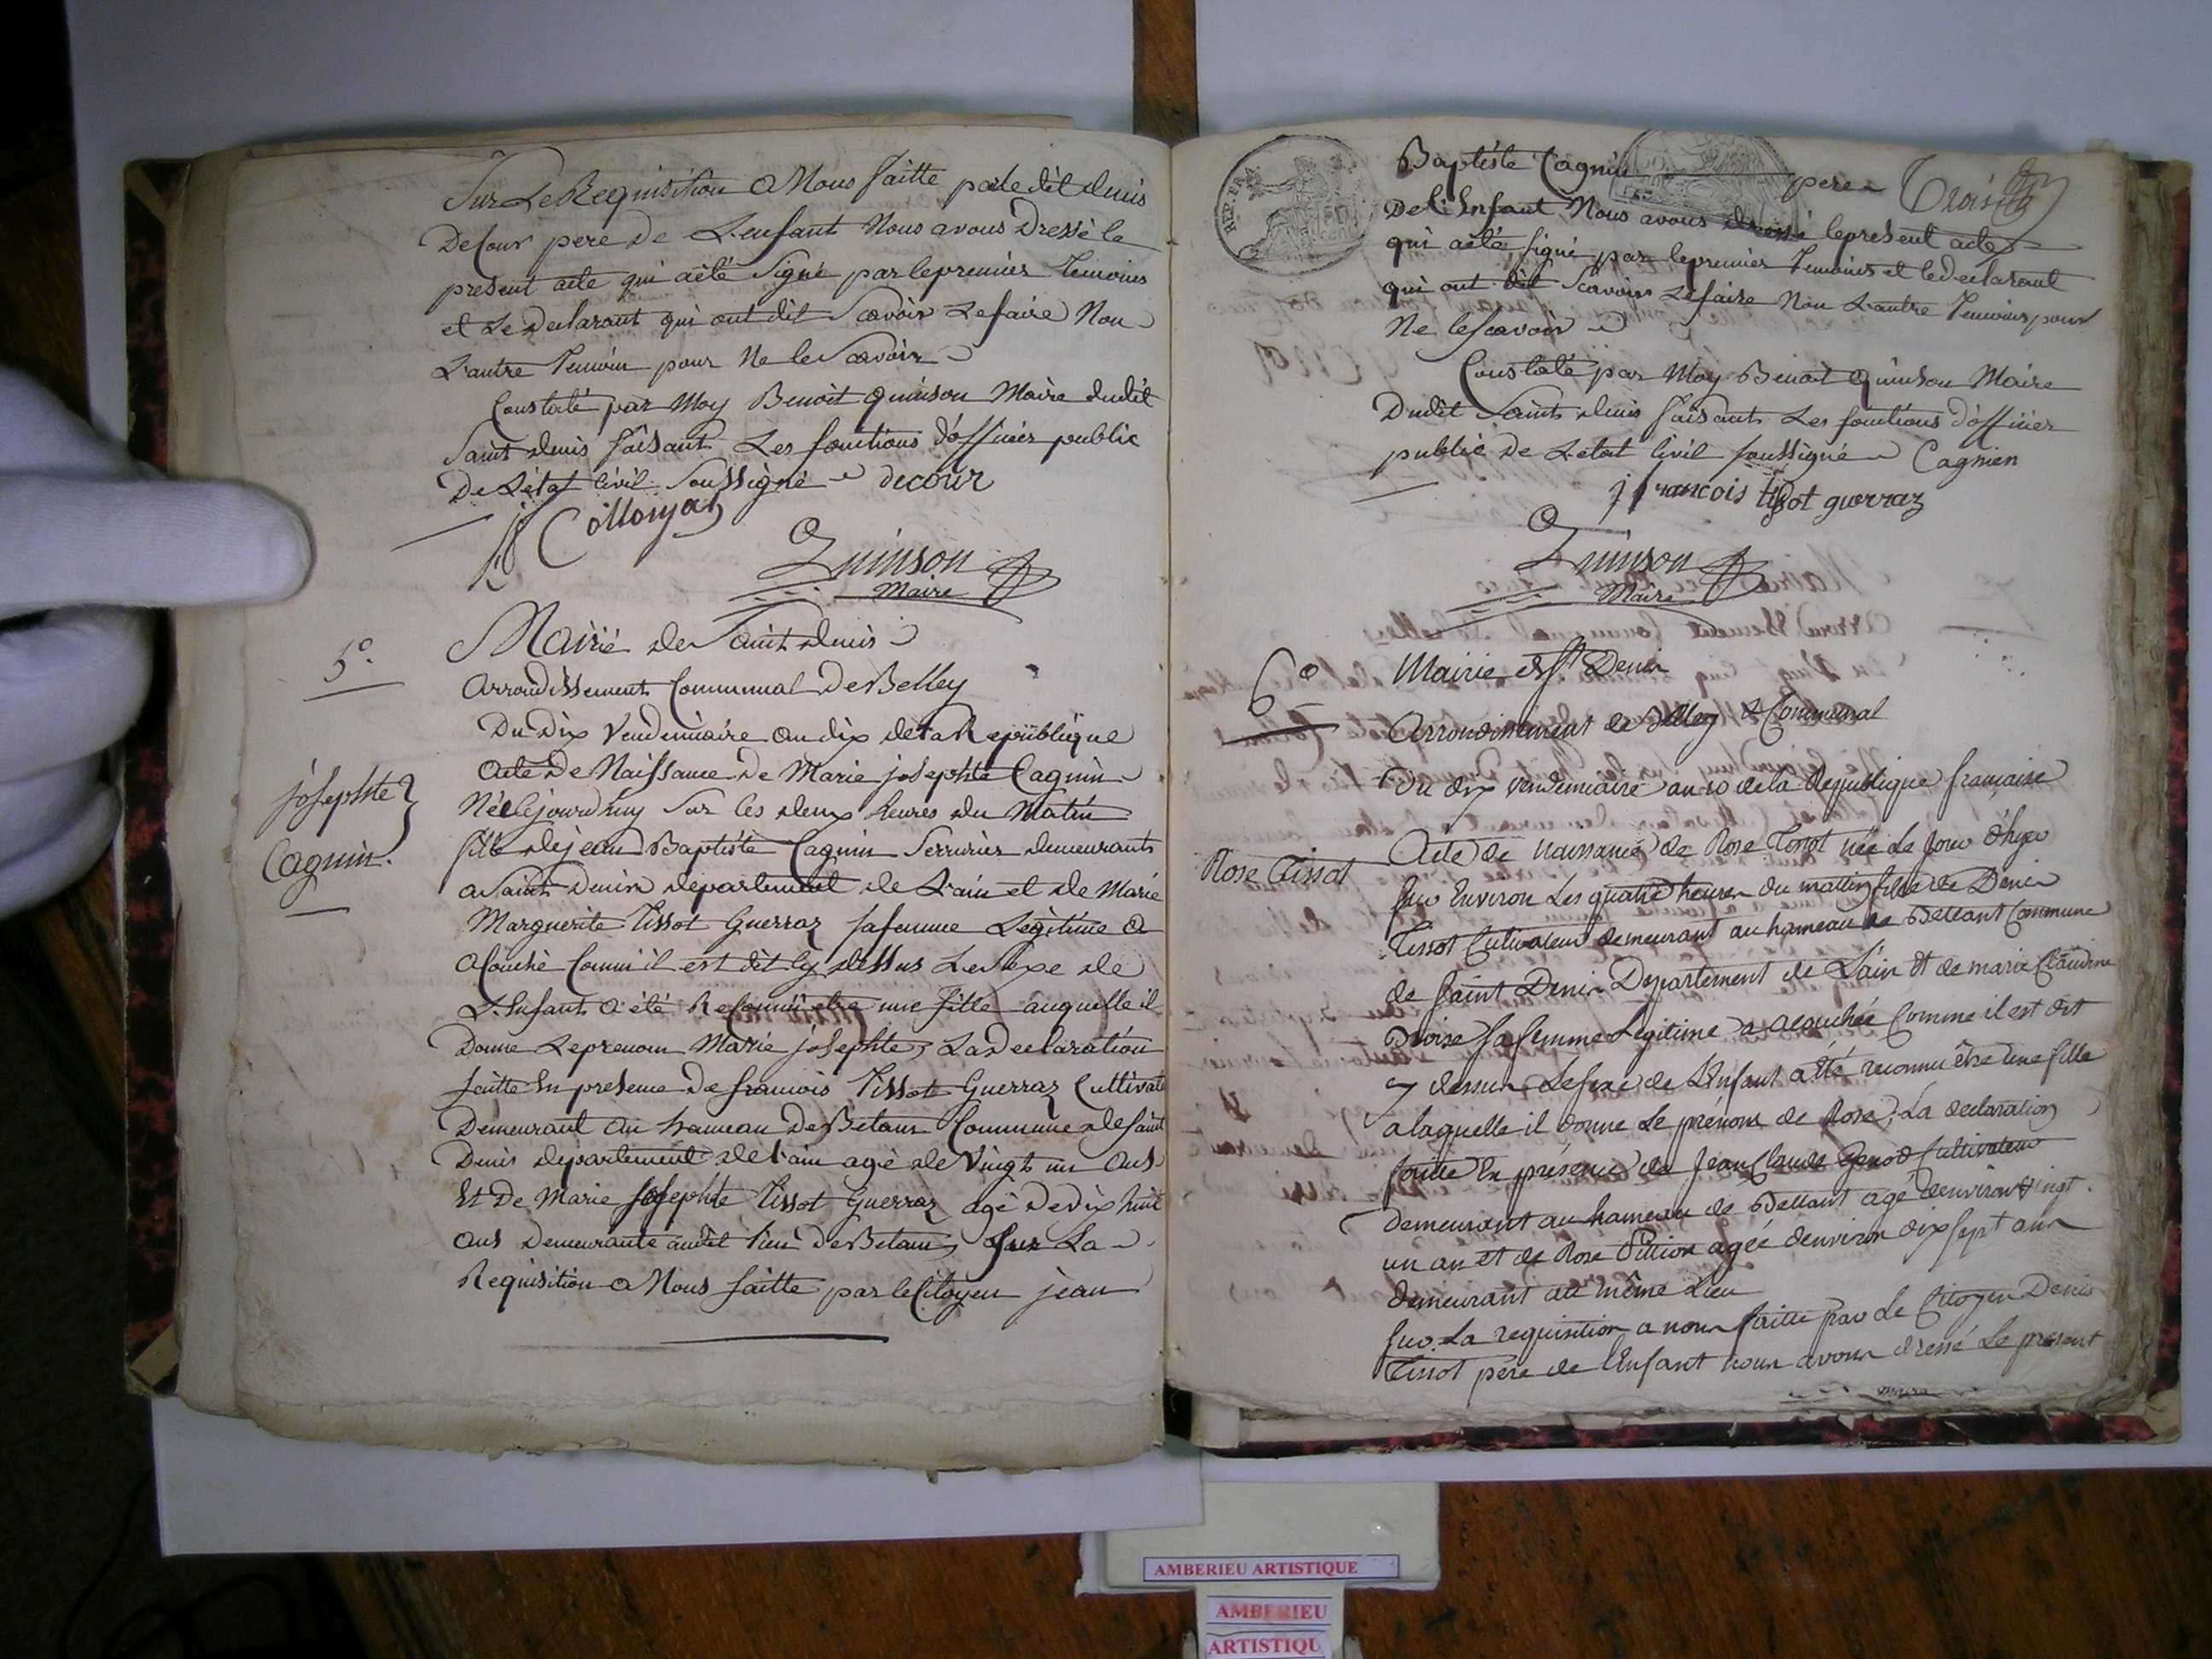 Sur Le Requisition a Nous faitte par le dit denis
Decour pere De L'enfant Nous avons Dressé le
present acte qui a èté Signé par le premier Temoins
et Le Declarant qui ont dit Scavoir Le faire Non
L'autre Temoin pour Ne le Scavoir
Constaté par Moy Benoit Quinson Maire dudit
Saint denis faisant Les fonctions d'officier public
De L'état Civil Soussigné decour
Collonjas
Quinson
Maire
5°.
Mairie de Saint denis
Arrondissement Communal De Belley
Du Dix Vendemiaire an dix de la Republique
Acte De Naissance De Marie josephte Cagnin
josephte
Cagnin.
Née le jourd'huy Sur les deux heures du Matin
fille de jean Baptiste Cagnin Serrurier demeurants
a Saint Denis departement de L'ain et de Marie
Marguerite Tissot Guerraz sa femme Legitime a
acouché Comm'il est dit cy dessus Le Sexe de
L'Enfant a été Reconnu etre une fille auquelle il
Donne Le prenom Marie josephte, La Declaration
faitte En presence De francois Tissot Guerraz Cultivate
Demeurant au hameau De Betans Commune de saint
Denis departement de l'ain agé de Vingt un ans
Et De Marie Josephte Tissot Guerraz agé De dix huit
ans Demeurante audit lieu De Betans, Sur La
Requisition a Nous faitte par le Citoyen jean
REP. FRA.
Baptiste Cagnin pere
Trois
De L'Enfant Nous avons dressé le present acte
qui a èté signé par le premier Temoins et le declarant
qui ont dit Scavoir Le faire Non L'autre Temoins pour
Ne le scavoir
Constaté par Moy Benoit Quinson Maire
Dudit Saint denis faisant Les fonctions d'officier
public de L'etat Civil soussigné Cagnien
francois tisot guerraz
Quinson
Maire
6°
Mairie de St Denis
Arrondissement de Belley & Communal
Du dix Vendemiaire an 10 de la Republique francaise
Rose Tissot
Acte de naissance de Rose Tissot née Le Jour d'hyer
sur Environ Les quatre heures du mattin fille de Denis
Tissot Cultivateur demeurant au hameau de Bettant Commune
de Saint Denis Departement de L'ain et de marie Claudine
sa femme Legitime a acouchée Comme il est dit
y dessus Le sexe de L'Enfant a été reconnu être une fille
a laquelle il donne Le prénom de Rose, La declaration
faitte En présence de Jean Claude Cultivateur
demeurant au hameau de Bettant agé denviron vingt
un an et de Rose agée denviron dix sept ans
demeurant au même Lieu
sur La requisition a nous faitte par Le Citoyen Denis
Tissot père de l'Enfant nous avons dressé Le present
maire
AMBERIEU ARTISTIQUE
AMBERIEU
ARTISTIQU